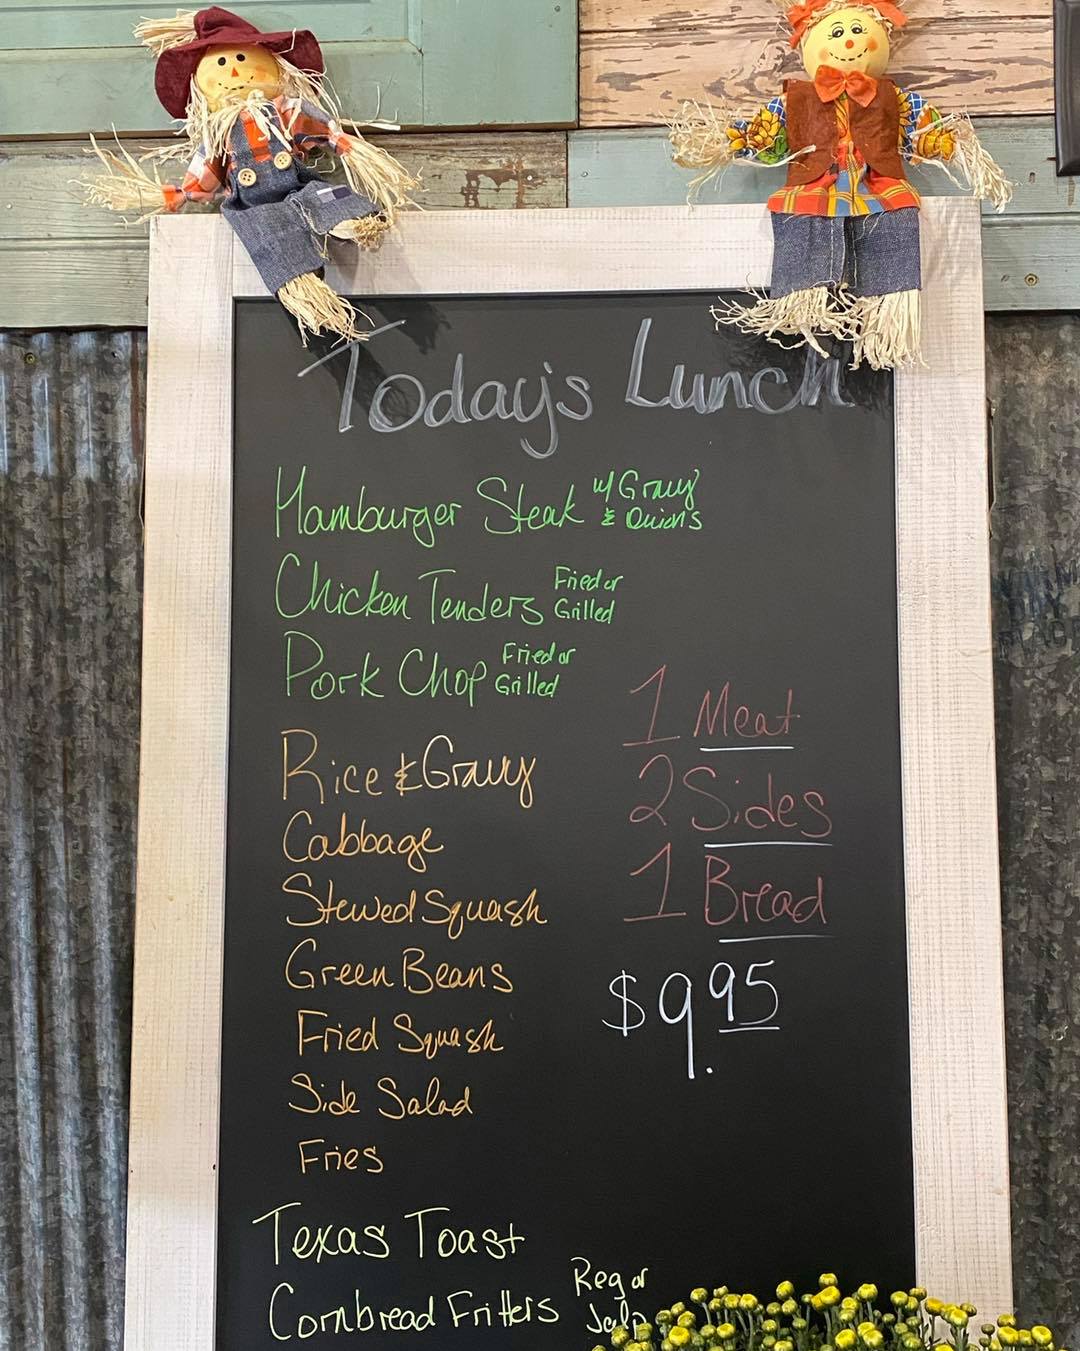 Today's Lunch
Hamburger Steak w/ Gravy & Onions
Chicken Tenders Fried or Grilled
Pork Chop Fried or Grilled
Rice & Gravy
Cabbage
Stewed Squash
Green Beans
Fried Squash
Side Salad
Fries
Texas Toast
Cornbread Fritters Reg or
1 Meat
2 Sides
1 Bread
$9.95